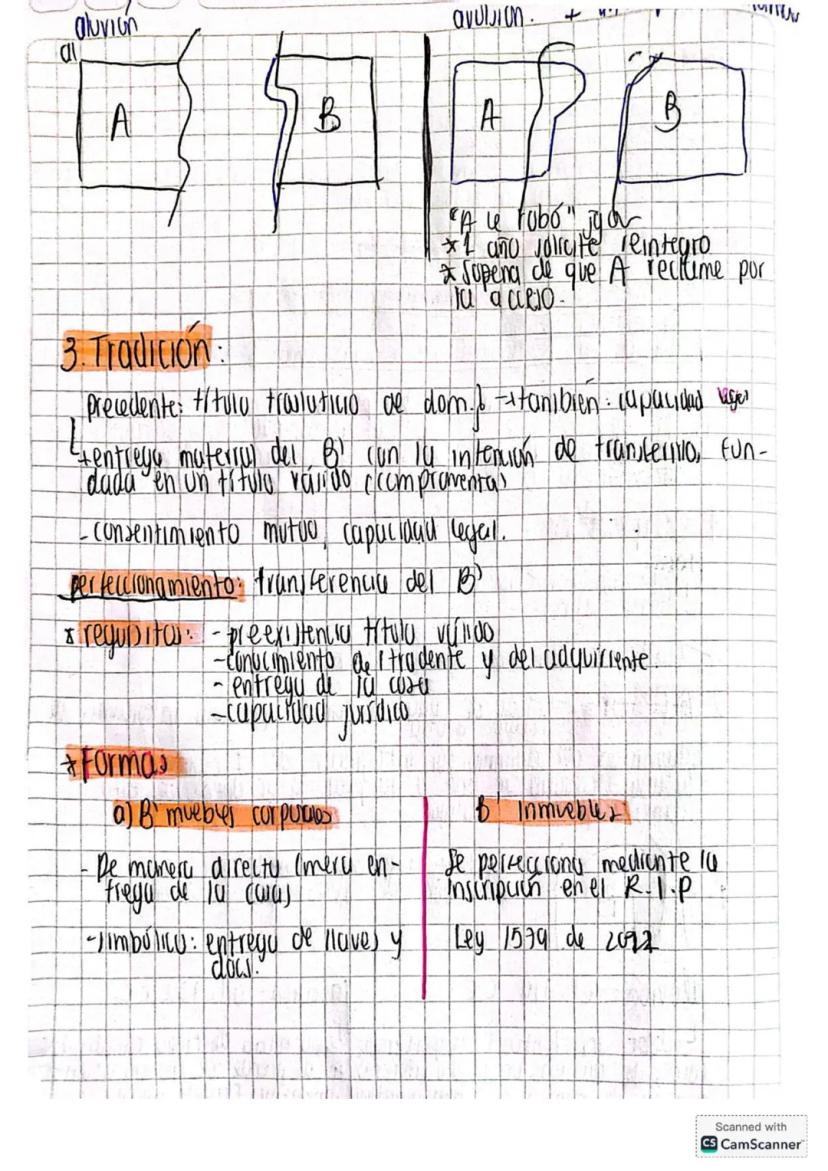 aluvión
a)
A
B
avulsión. +
A
B
"A le robó"
* 1 año solicite reintegro
* Supera de que A reclame por
la acceso.
3. Tradición:
precedente: título traslaticio de dom. → también: capacidad legal
↳ entrega material del B' con la intención de transferirlo, fun-
dada en un título válido (compraventa)
- consentimiento mutuo, capacidad legal.
perfeccionamiento: transferencia del B'
* requisitos: - preexistencia título válido
- conocimiento del tradente y del adquiriente.
- entrega de la cosa
- capacidad jurídica
* Formas
a) B' muebles corporales
- De manera directa (mera en-
trega de la cosa)
- simbólica: entrega de llaves y
docs.
B' Inmuebles
Se perfecciona mediante la
inscripción en el R.I.P
Ley 1579 de 2012
Scanned with
CS CamScanner